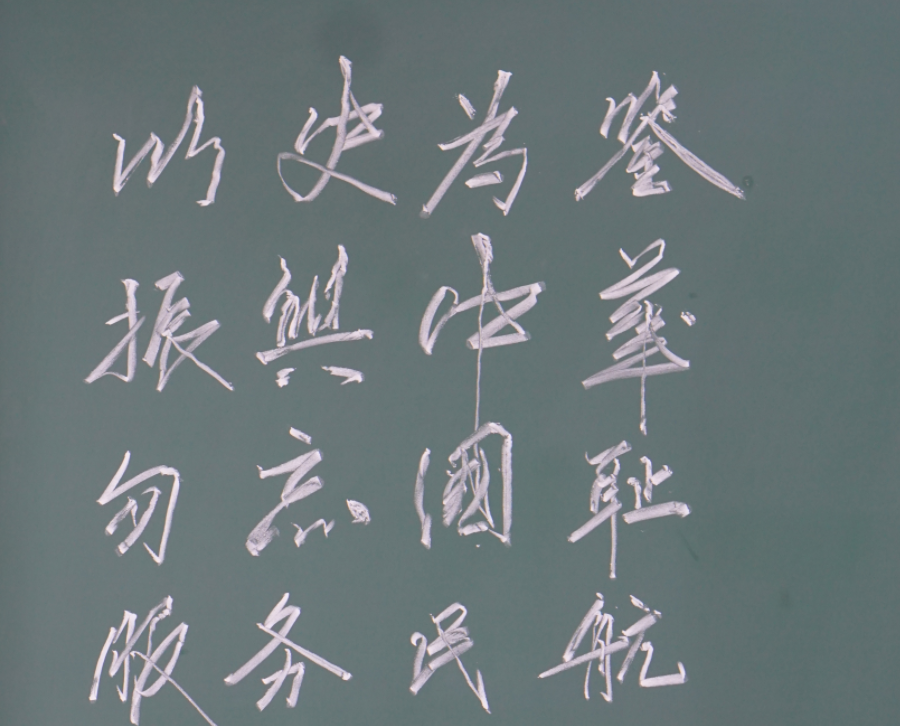 以史为鉴
振興中華
勿忘國耻
服务民航